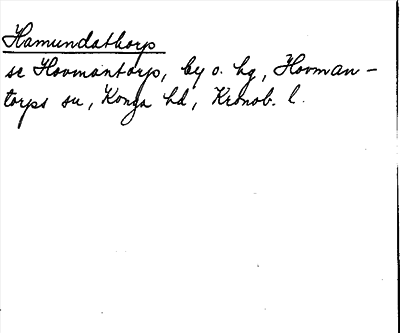 Hamundathorp
se Hovmantorp, by o. hg, Hovman-
torps sn, Konga hd, Kronob. l.